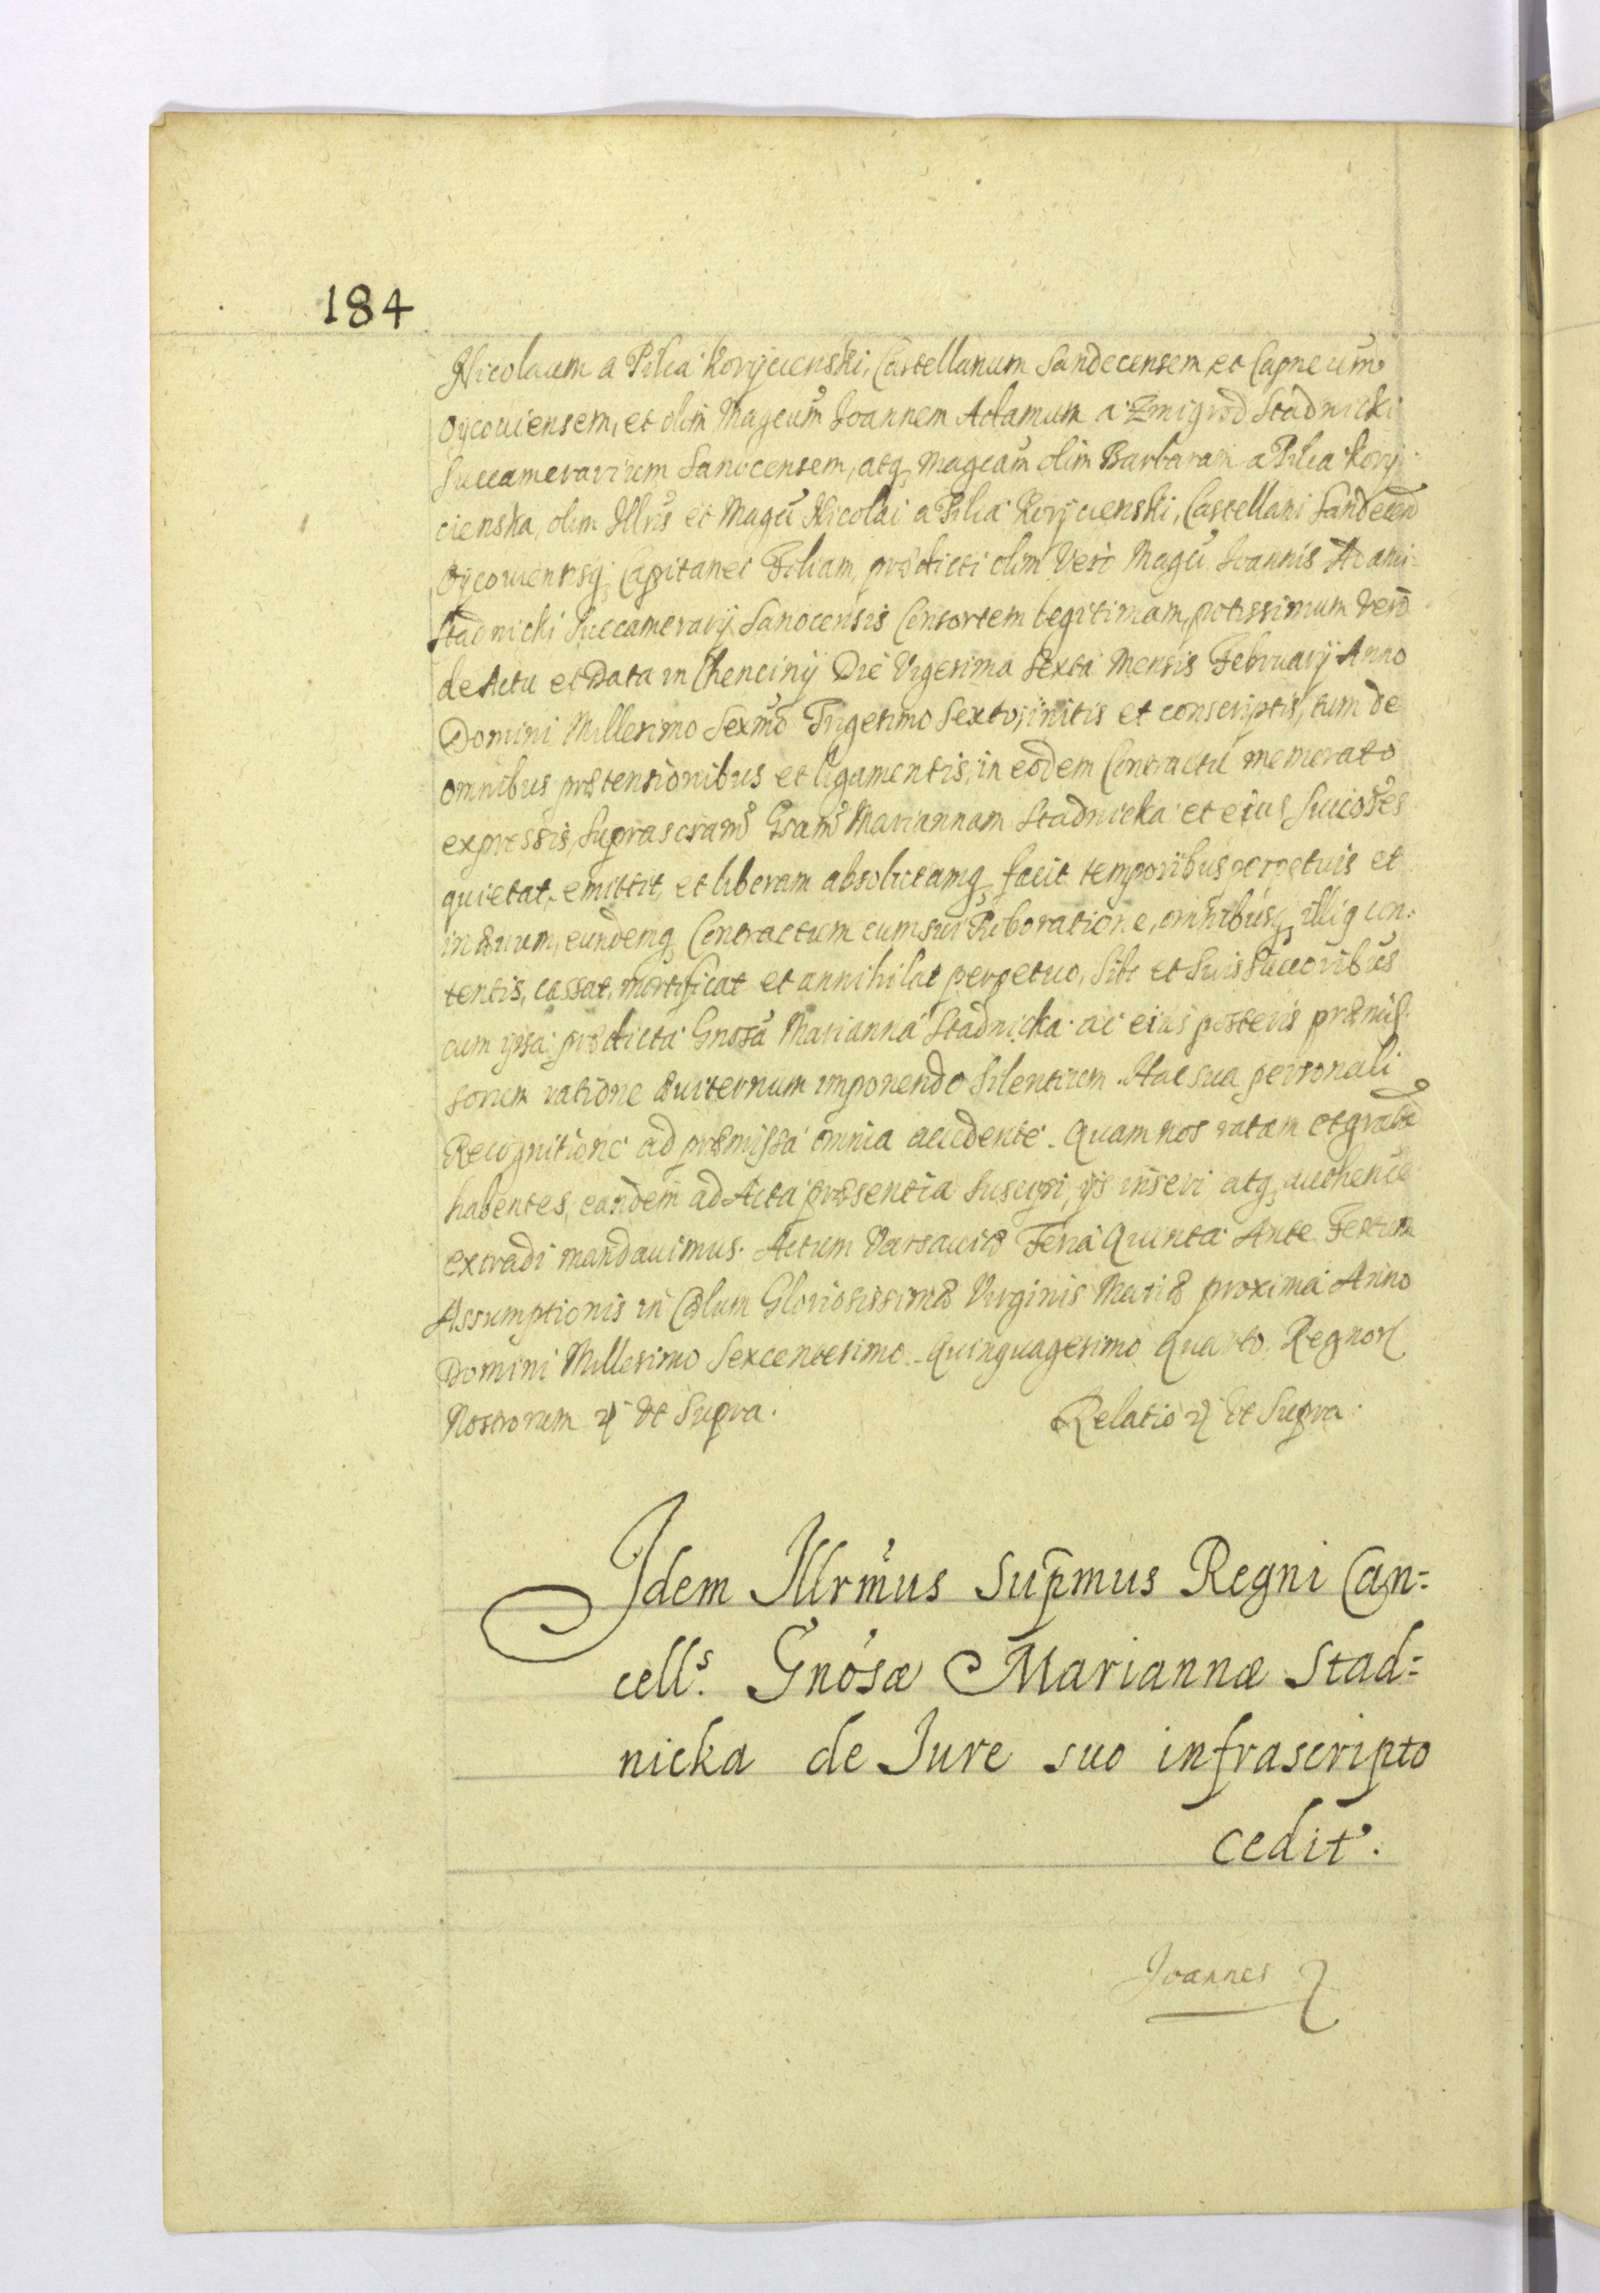 184
Nicolaum a Pilca Korycienski, Castellanum Sandecensem, et Capneum
Oycouiensem, et olim Magcum Joannem Adamum a Zmigrod Stadnicki
Succamerarium Sanocensem, atq, Magcam olim Barbaram a Pilca Kory
cienska, olim Illris et Magci Nicolai a Pilca Korycienski, Castellani Sandecen
Oycouiensisq, Capitanei Filiam, prædicti olim Vero Magci Joannis Adami
Stadnicki Succamerarij Sanocensis Consortem legitimam, potissimum Vero
de Actu et Data in Chenciny Die Vigesima Sexta Mensis Februarij Anno
Domini Millesimo Sexmo Trigesimo Sexto, initis et conscriptis, tum de
omnibus prætensionibus et ligamentis, in eodem Contractu memorato
expressis, Suprascram Gsam Mariannam Stadnicka et eius Succores
quietat, emittit, et liberam absolutamq, facit temporibus perpetuis et
in æuum, eundemq, Contractum cum sui Roboratione, omnibusq, illiq con:
tentis, cassat, mortificat et annihilat perpetuo, Sibi et Suis Succoribus
cum ipsa prædicta Gnosa Marianna Stadnicka ac eius posteris præmis
sorum ratione æuiternum imponendo Silentium. Hac sua personali
Recognitione ad præmissa omnia accedente. Quam nos ratam et gratā
habentes, eandem ad Acta præsentia Suscipi, ijs inseri atq, authence
extradi mandauimus. Actum Varsauiæ Feria Quinta Ante Festum
Assumptionis in Cœlum Gloriosissimæ Virginis Mariæ proxima Anno
Domini Millesimo Sexcentesimo Quinquagesimo Quarto. Regnor
Nostrorum & Vt Supra. Relatio & Vt Supra.
Idem Illrmus Supmus Regni Can=
cells. Gnosæ Mariannæ Stad=
nicka de Iure suo infrascripto
cedit.
Joannes